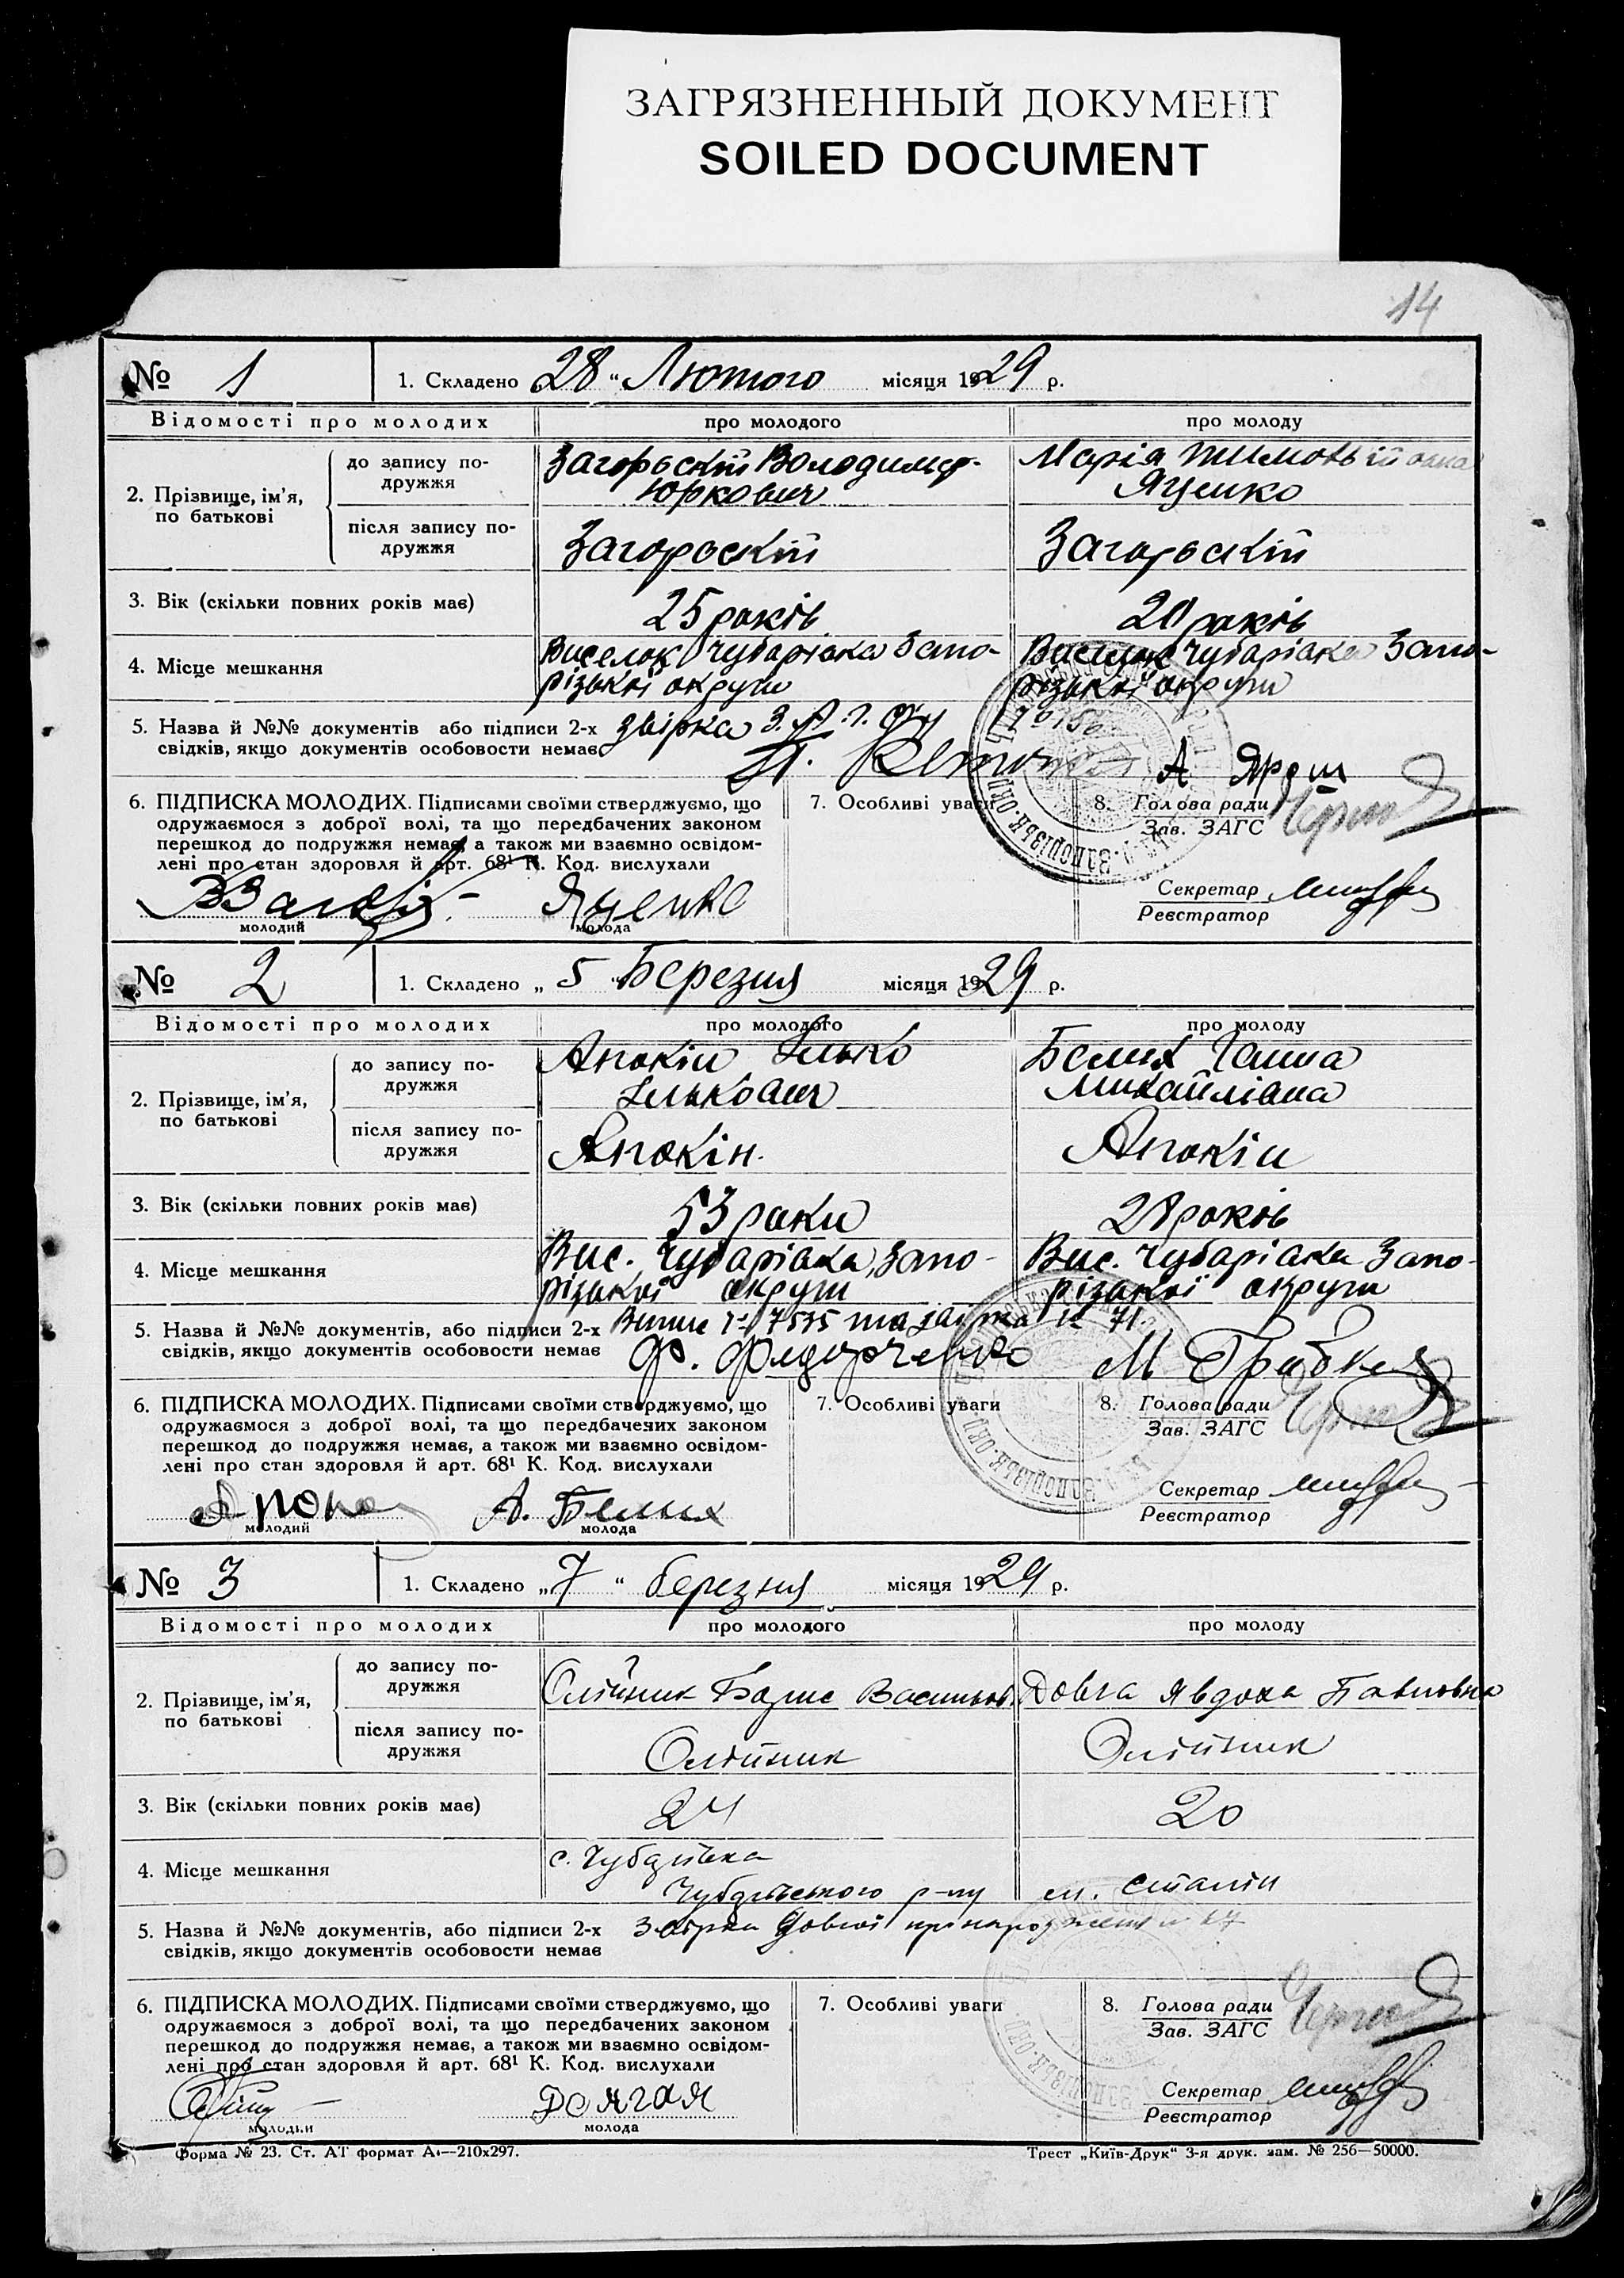 ЗАГРЯЗНЕННЫЙ ДОКУМЕНТ
SOILED DOCUMENT
14
№ 1 1. Складено 28 " Лютого місяця 1929 р.
Відомості про молодих про молодого про молоду
2. Прізвище, ім'я, по батькові
до запису по-
дружжя
Загорьскій Володимир
Юркович
Марія
Яценко
після запису по-
дружжя
Загорьскій Загорьскій
3. Вік (скільки повних років має) 25 років 20 років
4. Місце мешкання
Виселок Чубарівка Запо-
різької округи
Виселок Чубарівка Запо-
різької округи
5. Назва й №№ документів або підписи 2-х
свідків, якщо документів особовости немає
звірка
6. ПІДПИСКА МОЛОДИХ. Підписами своїми стверджуємо, що
одружаємося з доброї волі, та що передбачених законом
перешкод до подружжя немає, а також ми взаємно освідом-
лені про стан здоровля й арт. 68¹ К. Код. вислухали
Яценко
молодий молода
7. Особливі уваги
8. Голова ради
Зав. ЗАГС
Секретар
Реєстратор
№ 2 1. Складено „ 5 " Березня місяця 1929 р.
Відомості про молодих про молодого про молоду
2. Прізвище, ім'я,
по батькові
до запису по-
дружжя
Анокін Ілько
Ількович
Белих Ганна
Михайлівна
після запису по-
дружжя
Анокін. Анокін
3. Вік (скільки повних років має) 53 роки 28 років
4. Місце мешкання
Вис. Чубарівка, Запо-
різької округи
Вис. Чубарівка Запо-
різької округи
5. Назва й №№ документів, або підписи 2-х
свідків, якщо документів особовости немає
7535 та 71
Ф. Федорченко
6. ПІДПИСКА МОЛОДИХ. Підписами своїми стверджуємо, що
одружаємося з доброї волі, та що передбачених законом
перешкод до подружжя немає, а також ми взаємно освідом-
лені про стан здоровля й арт. 68¹ К. Код. вислухали
А. Белих
молодий молода
7. Особливі уваги
8. Голова ради
Зав. ЗАГС
Секретар
Реєстратор
№ 3 1. Складено „ 7 " березня місяця 1929 р.
Відомості про молодих про молодого про молоду
2. Прізвище, ім'я,
по батькові
до запису по-
дружжя
Олійник Борис Васильов. Довга Явдоха Павловна
після запису по-
дружжя
Олійник Олійник
3. Вік (скільки повних років має) 24 20
4. Місце мешкання
с. Чубарівка
Чубарівського р-ну
ст. Сталін
5. Назва й №№ документів, або підписи 2-х
свідків, якщо документів особовости немає
Звірка Довгої
6. ПІДПИСКА МОЛОДИХ. Підписами своїми стверджуємо, що
одружаємося з доброї волі, та що передбачених законом
перешкод до подружжя немає, а також ми взаємно освідом-
лені про стан здоровля й арт. 68¹ К. Код. вислухали
Довгая
молодий молода
7. Особливі уваги
8. Голова ради
Зав. ЗАГС
Секретар
Реєстратор
Форма № 23. Ст. АТ формат А4—210х297.
Трест „Київ-Друк" 3-я друк. зам. № 256—50000.